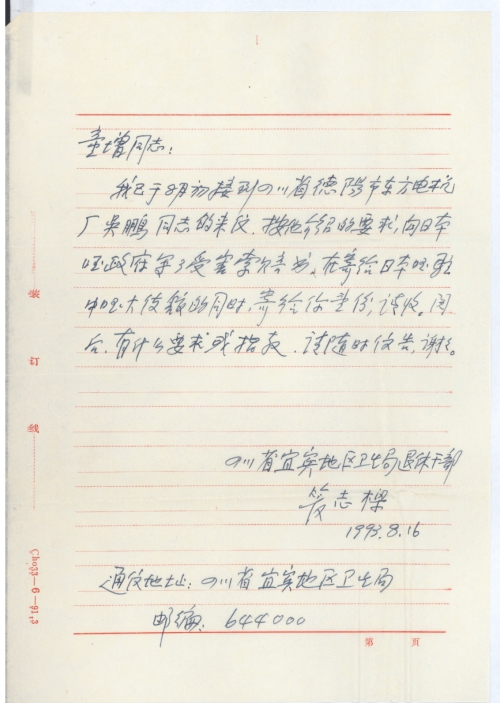 童增同志:
我已于8月初接到四川省德阳市东方电机
厂吴鹏同志的来信.按他介绍的要求,向日本
国政府写了受害索赔书,在寄给日本国驻
中国大使馆的同时,寄给你壹份,请收。阅
后,有什么要求或指教.请随时信告,谢谢。
四川省宜宾地区卫生局退休干部
志樑
1993.8.16
通信地址:四川省宜宾地区卫生局
邮编:644000
装
订
线
Chq33—6—91.3
第 页